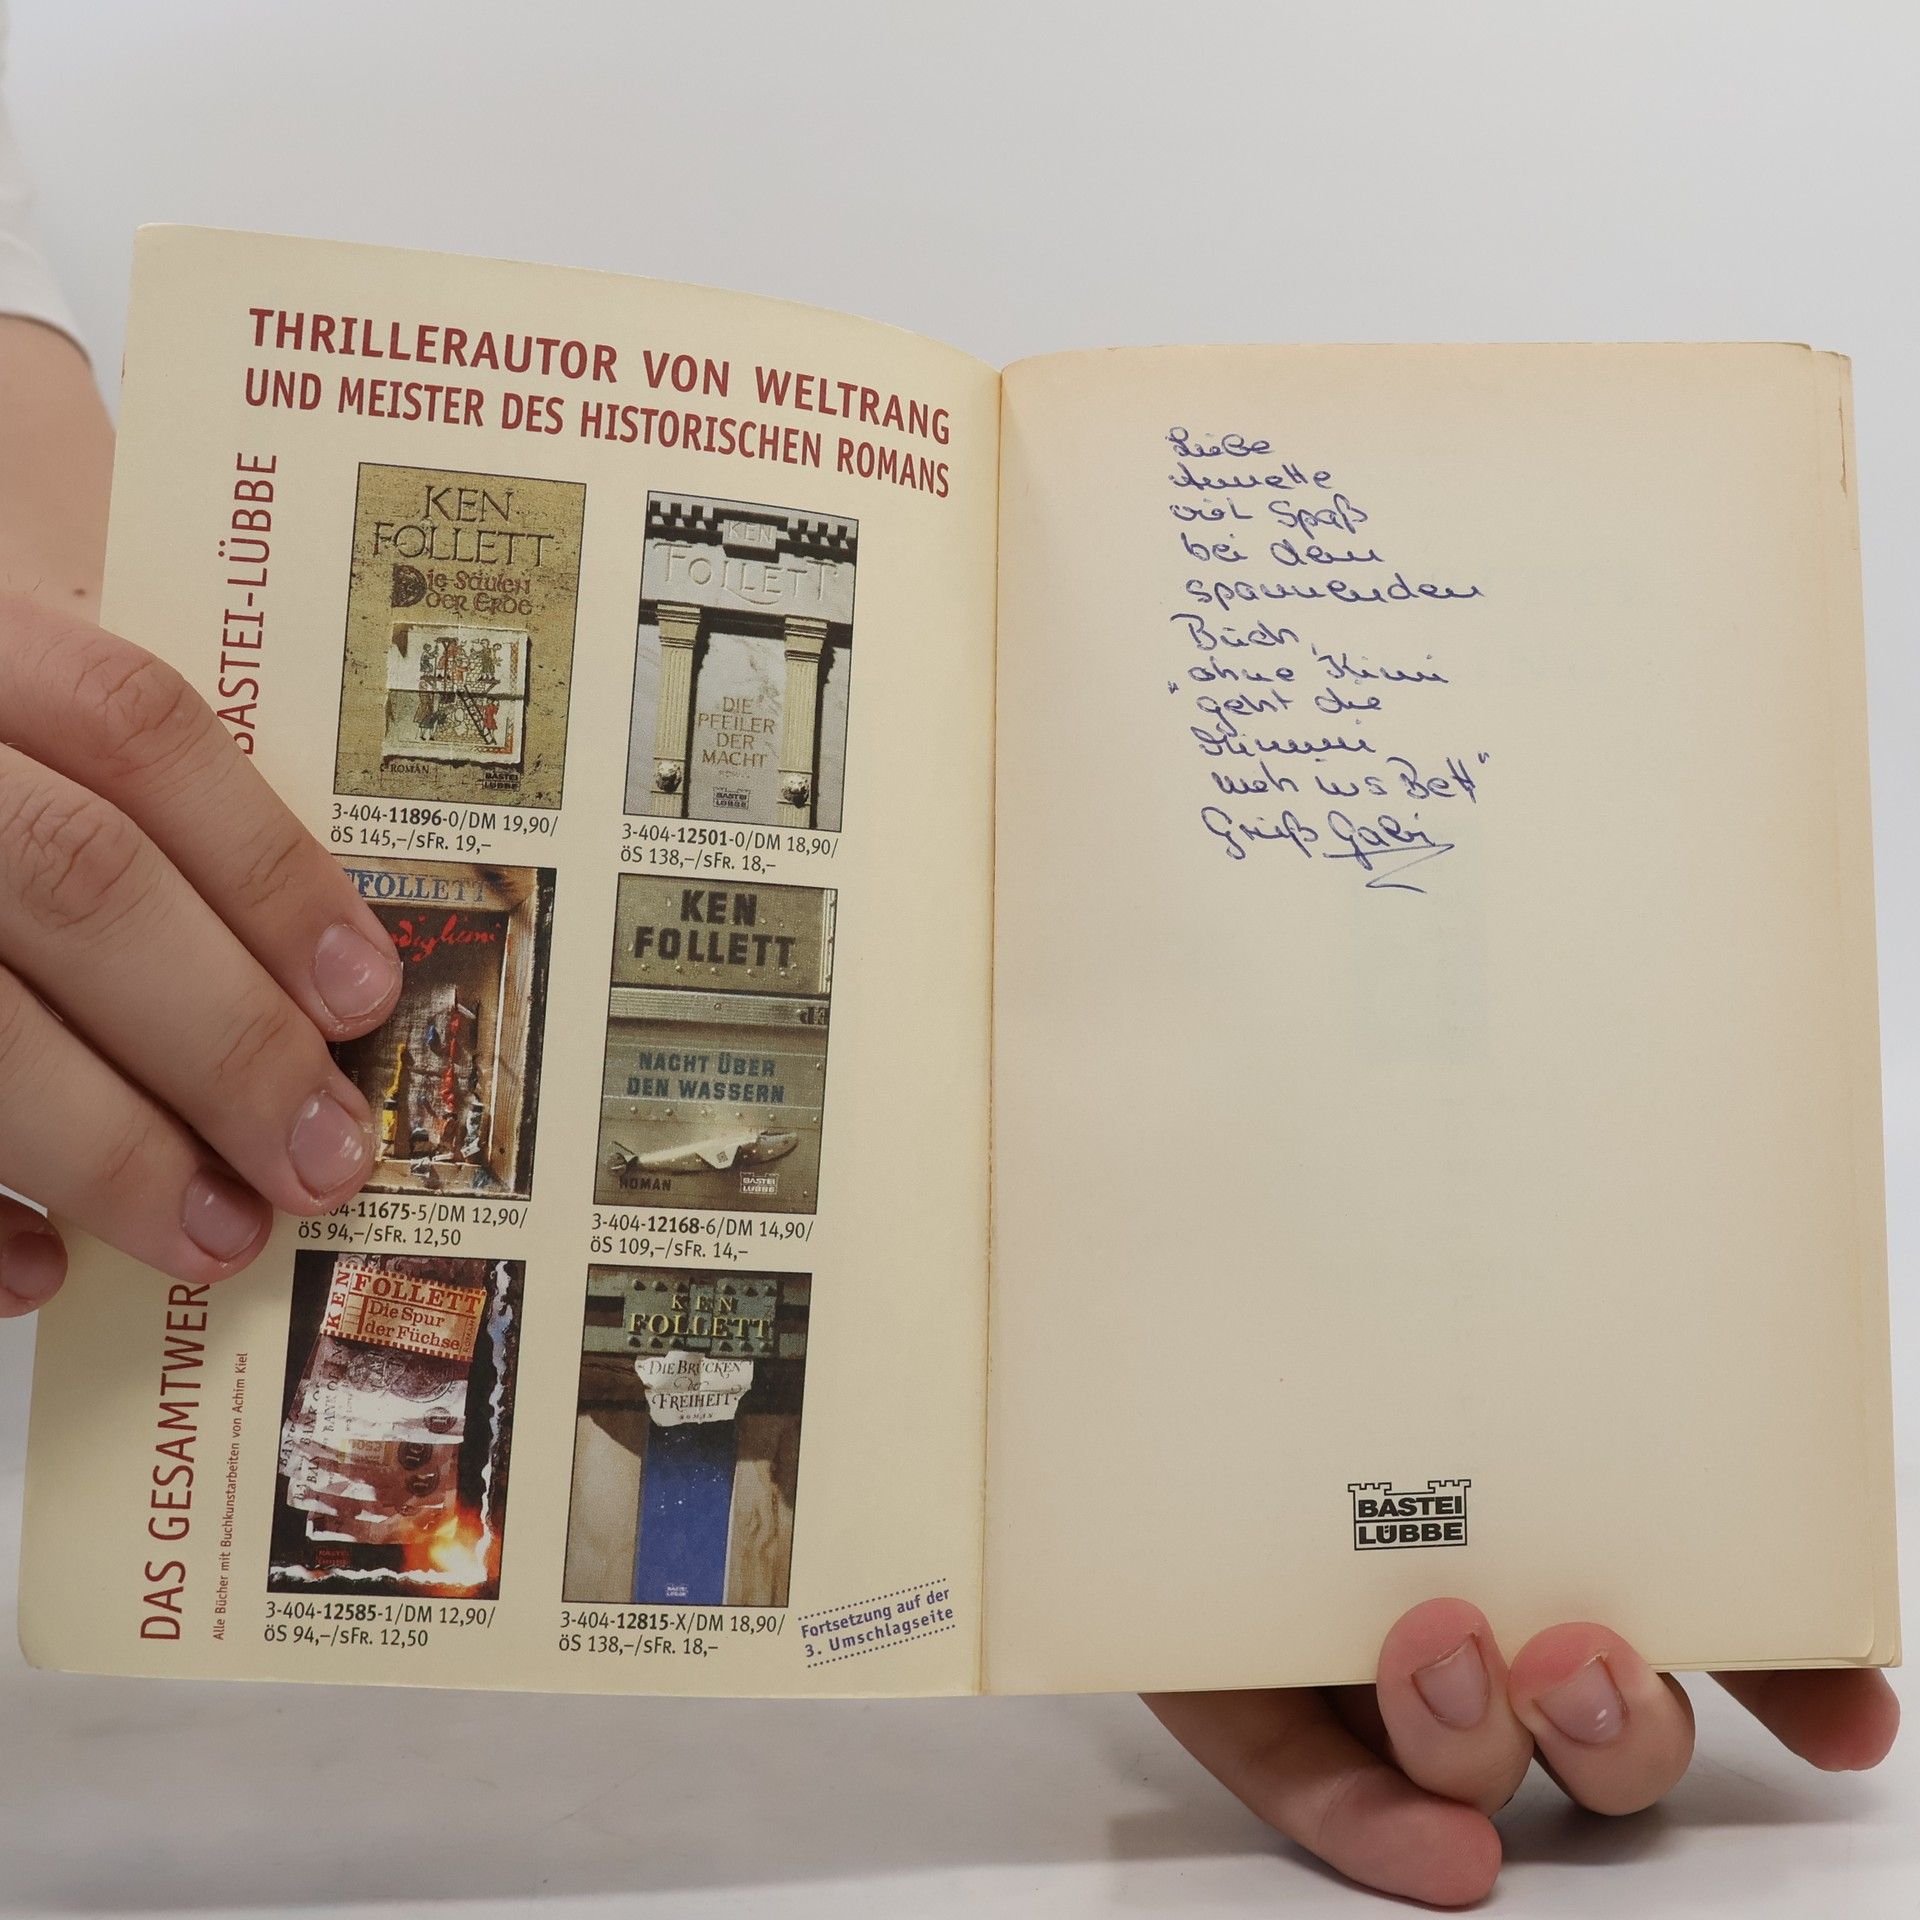 THRILLERAUTOR VON WELTRANG
UND MEISTER DES HISTORISCHEN ROMANS
BASTEI-LÜBBE
DAS GESAMTWER
Alle Bücher mit Buchkunstarbeiten von Achim Kiel
KEN
FOLLETT
Die Säulen
der Erde
ROMAN
BASTEI
LÜBBE
3-404-11896-0/DM 19,90/
öS 145,–/sFr. 19,–
KEN
FOLLETT
DIE
PFEILER
DER
MACHT
BASTEI
LÜBBE
3-404-12501-0/DM 18,90/
öS 138,–/sFr. 18,–
FOLLETT
digliani
04-11675-5/DM 12,90/
öS 94,–/sFr. 12,50
KEN
FOLLETT
NACHT ÜBER
DEN WASSERN
ROMAN
BASTEI
LÜBBE
3-404-12168-6/DM 14,90/
öS 109,–/sFr. 14,–
KEN
FOLLETT
Die Spur
der Füchse
3-404-12585-1/DM 12,90/
öS 94,–/sFr. 12,50
KEN
FOLLETT
DIE BRÜCKEN
der
FREIHEIT
ROMAN
3-404-12815-X/DM 18,90/
öS 138,–/sFr. 18,–
Fortsetzung auf der
3. Umschlagseite
Liebe
Annette
viel Spaß
bei dem
spannenden
Buch,
ohne Krimi
"geht die
Mimmi
nich ins Bett"
Gruß Gabi
BASTEI
LÜBBE